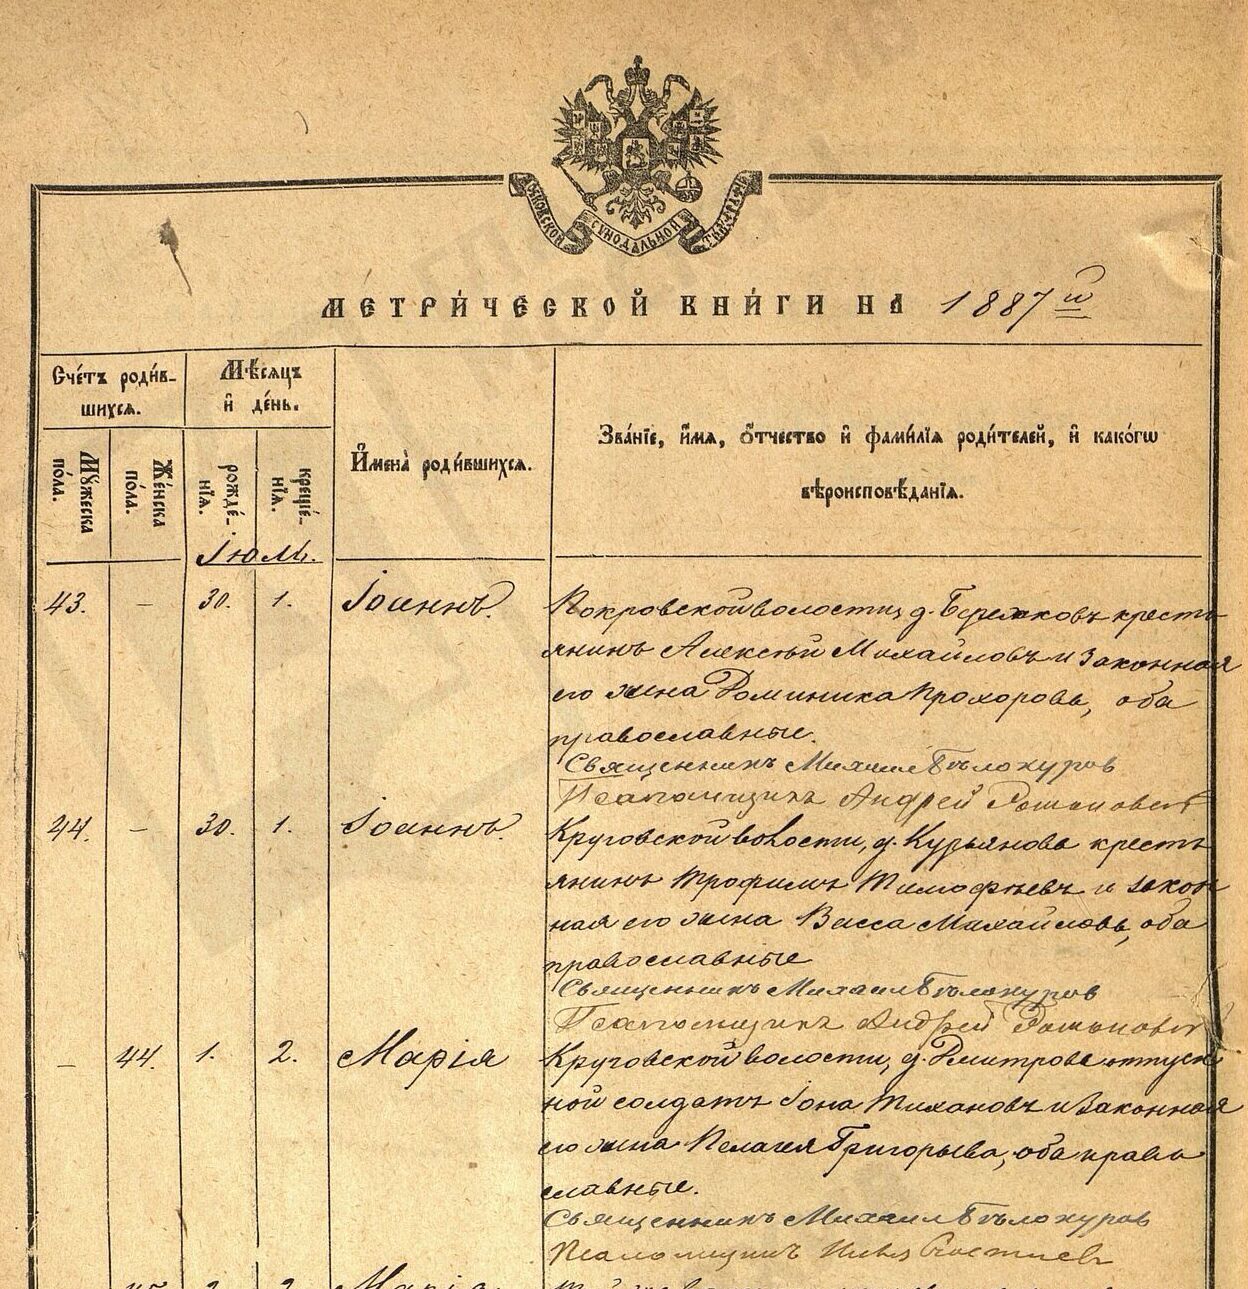 МОСКОВСКОЙ СѴНОДАЛЬНОЙ ТѴПОГРАФІИ
МЕТРИ́ЧЕСКОЙ КНИ́ГИ НА 1887й
Сче́тъ роди́в-
шихся.
Мѣ́сяцъ
и҆ де́нь.
И҆мена̀ роди́вшихся.
Зва́нїе, и҆́мя, ѻ҆́тчество и҆ фами́лїя роди́телей, и҆ како́гѡ
вѣроисповѣ́данїя.
Мꙋжеска
по́ла.
Же́нска
по́ла.
рожде́-
нїя.
креще́-
нїя.
Іюль.
43. – 30. 1. Іоаннъ. Покровской волости, д. Бережковъ кресть
янинъ Алексѣй Михайловъ и законная
его жена Доминика Прохорова, оба
православные.
Священникъ Михаил Бѣлокуров
Псаломщикъ Андрей
44. – 30. 1. Іоаннъ. Круговской волости, д. Курьянова кресть
янинъ Трофимъ Тимофѣевъ и закон
ная его жена Васса Михайлова, оба
православные
Священникъ Михаил Бѣлокуров
Псаломщикъ Андрей
– 44. 1. 2. Марія Круговской волости, д. Дмитрова отпуск
ной солдатъ Іона Тихановъ и законная
его жена Пелагея Григорьева, оба право
славные.
Священникъ Михаил Бѣлокуров
Псаломщикъ Илья
45 2 2 Марія